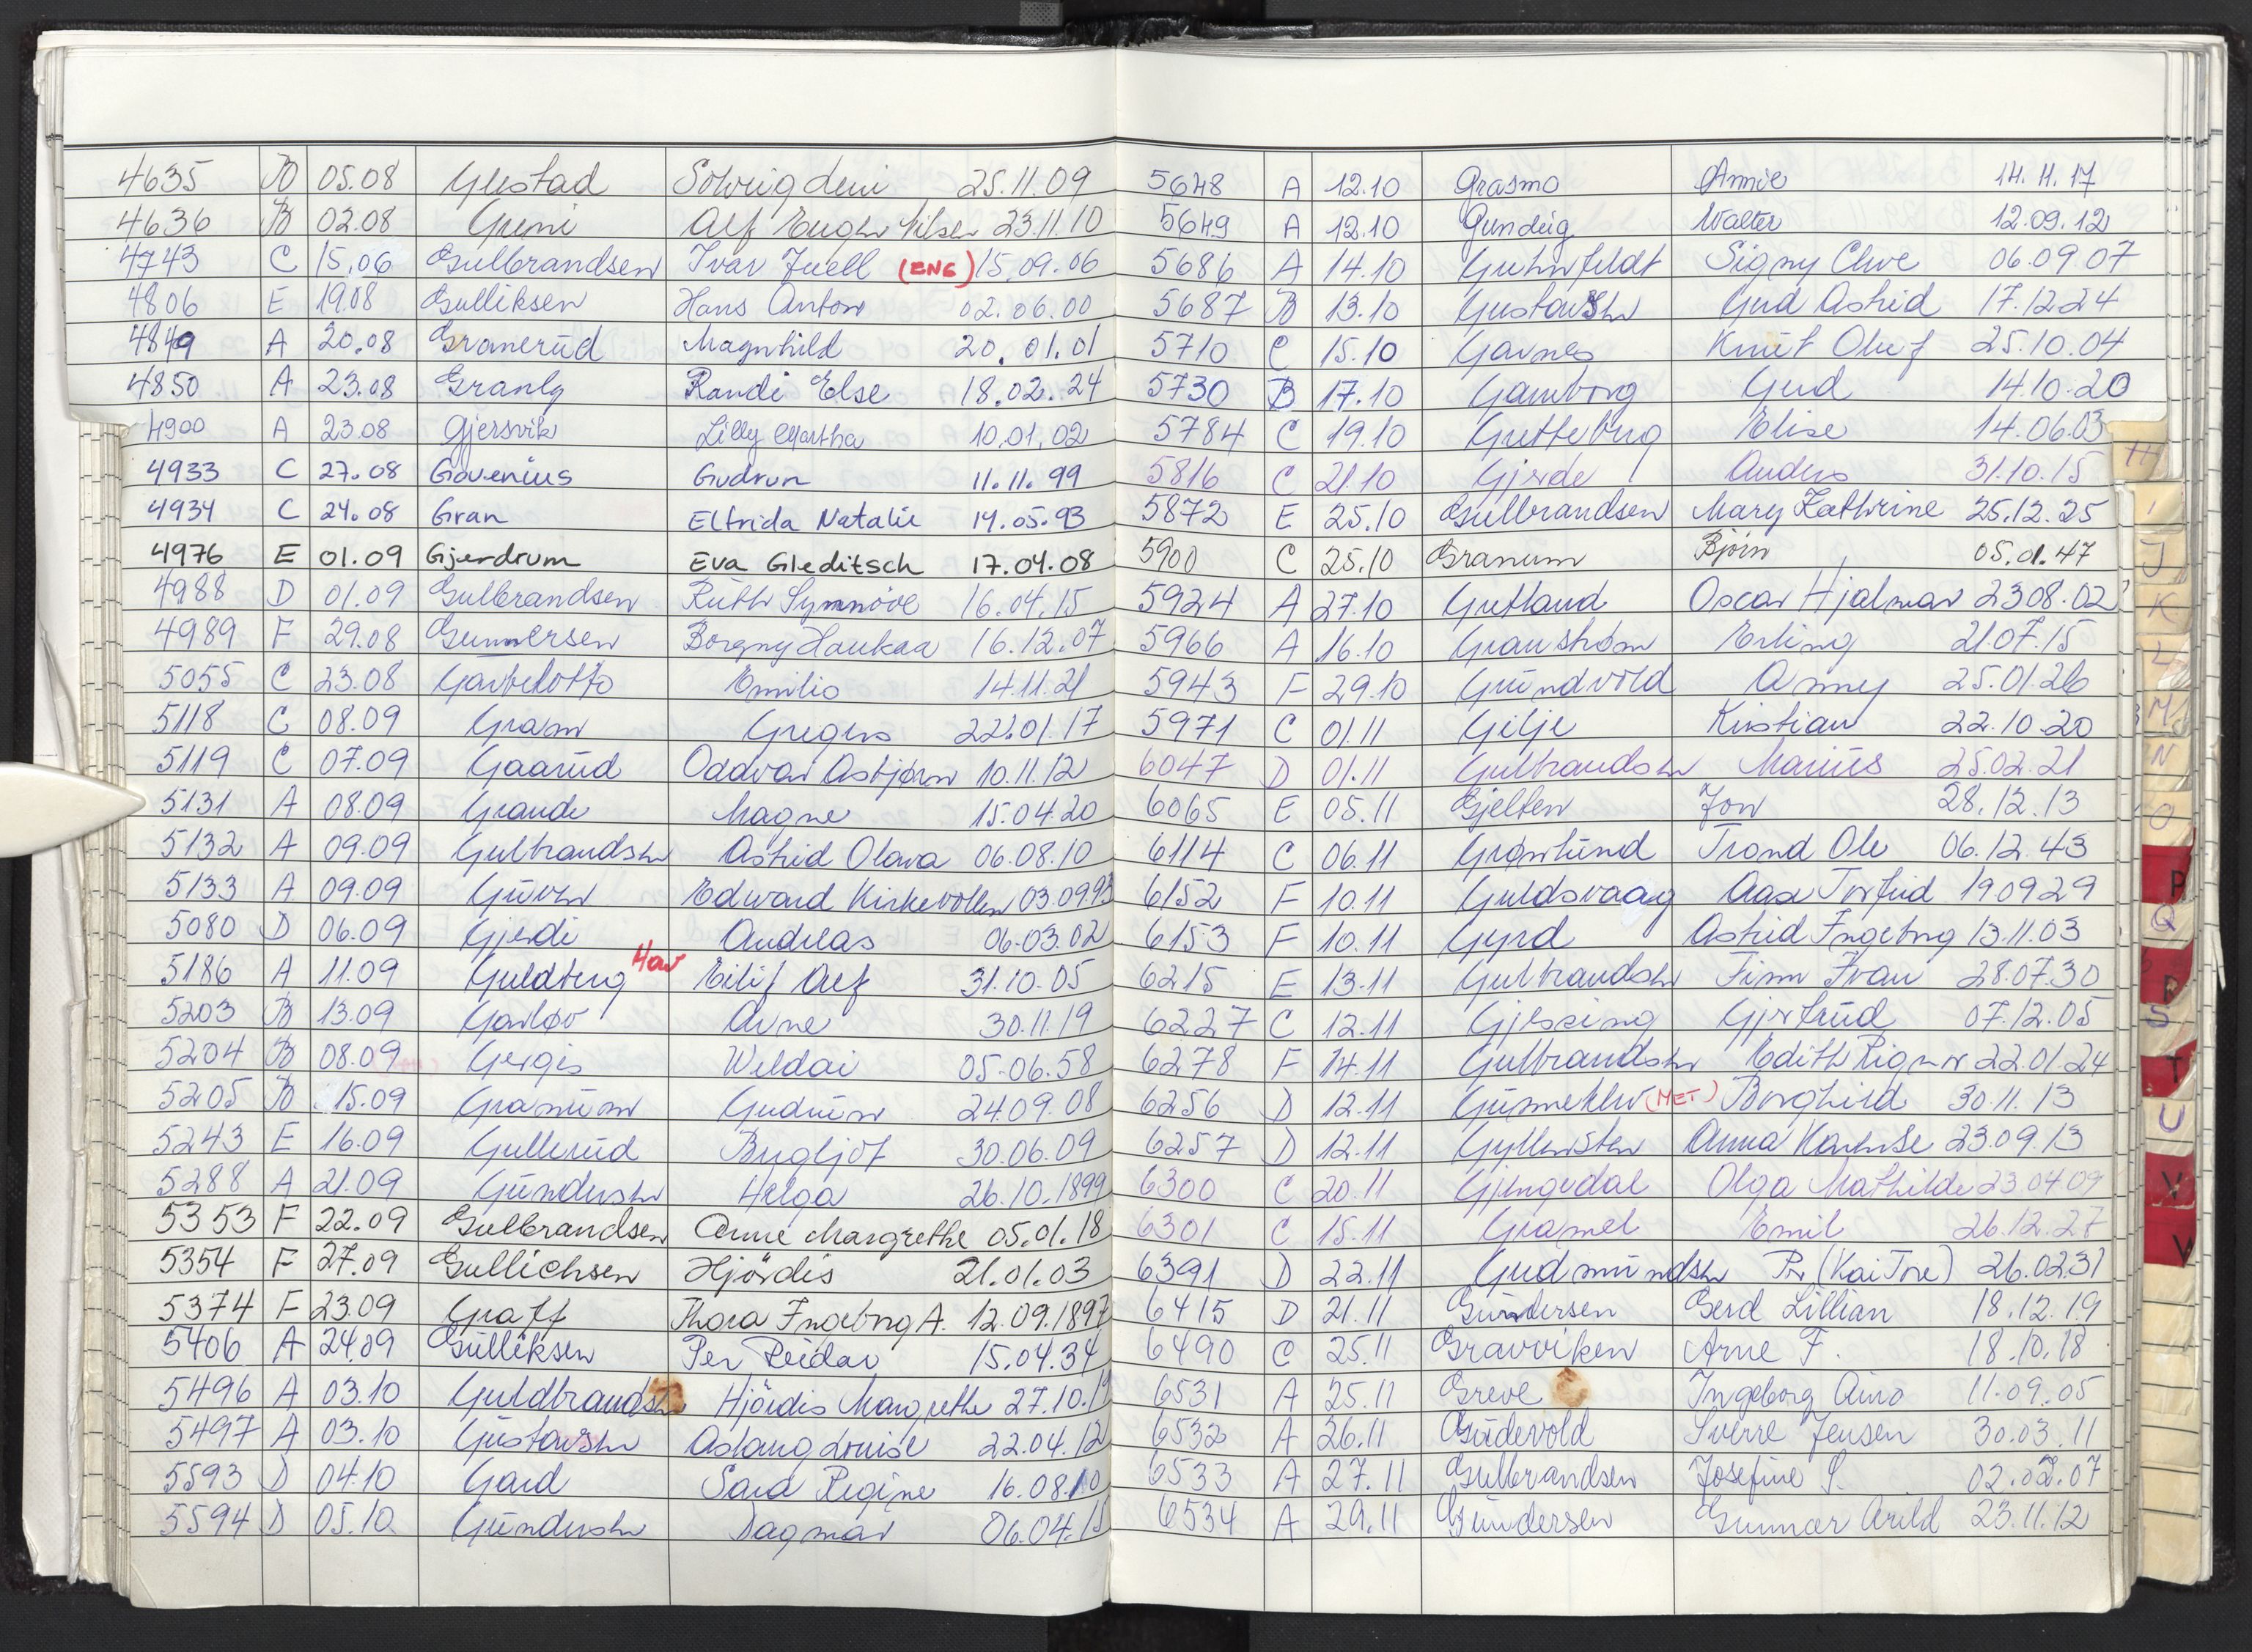 4635 B 05.08 Gjestad Solveig Leni 25.11.09
4636 B 02.08 Greni Alf Eugen Nilsen 23.11.10
4743 C 15.06 Gulbrandsen Ivar Juell (ENG) 15.09.06
4806 E 19.08 Gulliksen Hans Anton 02.06.00
4849 A 20.08 Granerud Magnhild 20.01.01
4850 A 23.08 Granly Randi Else 18.02.24
4900 A 23.08 Gjersvik Lilly Martha 10.01.02
4933 C 27.08 Gavenius Gudrun 11.11.99
4934 C 24.08 Gran Elfrida Natalie 14.05.93
4976 E 01.09 Gjerdrum Eva Gleditsch 17.04.08
4988 D 01.09 Gulbrandsen Ruth Synnöve 16.04.15
4989 F 29.08 Gunnersen Borgny Haukaa 16.12.07
5055 C 23.08 Garbelotto Emilio 14.11.21
5118 C 08.09 Gram Gregers 22.01.17
5119 C 07.09 Gaarud Oddvar Asbjørn 10.11.12
5131 A 08.09 Grande Magne 15.04.20
5132 A 09.09 Gulbrandsen Astrid Olava 06.08.10
5133 A 09.09 Gúven Edward Kirkevollen 03.09.93
5080 D 06.09 Gjerdi Andreas 06.03.02
5186 A 11.09 Guldberg Hov Eilif Alf 31.10.05
5203 B 13.09 Garløv Arne 30.11.19
5204 B 08.09 Gergis Weldai 05.06.58
5205 B 15.09 Granum Gudrun 24.09.08
5243 E 16.09 Gullerud Bergljot 30.06.09
5288 A 21.09 Gundersen Helga 26.10.1899
5353 F 22.09 Gulbrandsen Anne Margrethe 05.01.18
5354 F 27.09 Gullichsen Hjördis 21.01.03
5374 F 23.09 Graff Thora Ingeborg A. 12.09.1897
5406 A 24.09 Gulliksen Per Reidar 15.04.34
5496 A 03.10 Guldbrandsen Hjördis Margrethe 27.10.19
5497 A 03.10 Gustavsen Aslaug Louise 22.04.12
5593 D 04.10 Gard Sara Regine 16.08.10
5594 D 05.10 Gundersen Dagmar 06.04.15
5648 A 12.10 Grasmo Annie 14.11.17
5649 A 12.10 Gundeig Walter 12.09.12
5686 A 14.10 Guhnfeldt Signy Elve 06.09.07
5687 B 13.10 Gustavsen Gerd Astrid 17.12.24
5710 C 15.10 Garnes Knut Oluf 25.10.04
5730 B 17.10 Gamborg Gerd 14.10.20
5784 C 19.10 Gretteberg Elise 14.06.03
5816 C 21.10 Gjerde Anders 31.10.15
5872 E 25.10 Gulbrandsen Mary Kathrine 25.12.25
5900 C 25.10 Granum Bjørn 05.01.47
5924 A 27.10 Gutland Oscar Hjalmar 23.08.02
5966 A 16.10 Granstrøm Erling 21.07.15
5943 F 29.10 Grundvold Anny 25.01.26
5971 C 01.11 Gilje Kristian 22.10.20
6047 D 01.11 Gulbrandsen Marius 25.02.21
6065 E 05.11 Gjelten Jon 28.12.13
6114 C 06.11 Grønlund Trond Ole 06.12.43
6152 F 10.11 Guldsvaag Aase Torfrid 190929
6153 F 10.11 Gyrd Astrid Ingeborg 13.11.03
6215 E 13.11 Gulbrandsen Finn Ivan 28.07.30
6227 C 12.11 Gjessing Gjertrud 07.12.05
6278 F 14.11 Gulbrandsen Edith Rigmor 22.01.24
6256 D 12.11 (MET) Borghild 30.11.13
6257 D 12.11 Gyllensten Anna Karense 23.09.13
6300 C 20.11 Gjengedal Olga Mathilde 23.04.09
6301 C 15.11 Gramel Emil 26.12.27
6391 D 22.11 Gudmundsen Per (Kai Tore) 26.02.31
6415 D 21.11 Gundersen Gerd Lillian 18.12.19
6490 C 25.11 Gravviken Arne F. 18.10.18
6531 A 25.11 Greve Ingeborg Aino 11.09.05
6532 A 26.11 Gudevold Sverre Jensen 30.03.11
6533 A 27.11 Gulbrandsen Josefine S. 02.02.07
6534 A 29.11 Gundersen Gunnar Arild 23.11.12
H
I
J
K
L
M
N
O
P
Q
R
S
T
U
V